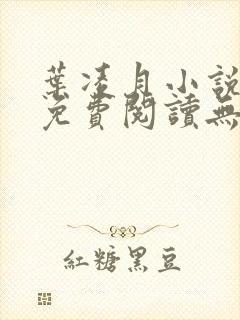 葉淩月小說
免費閱讀無
紅糖黑豆